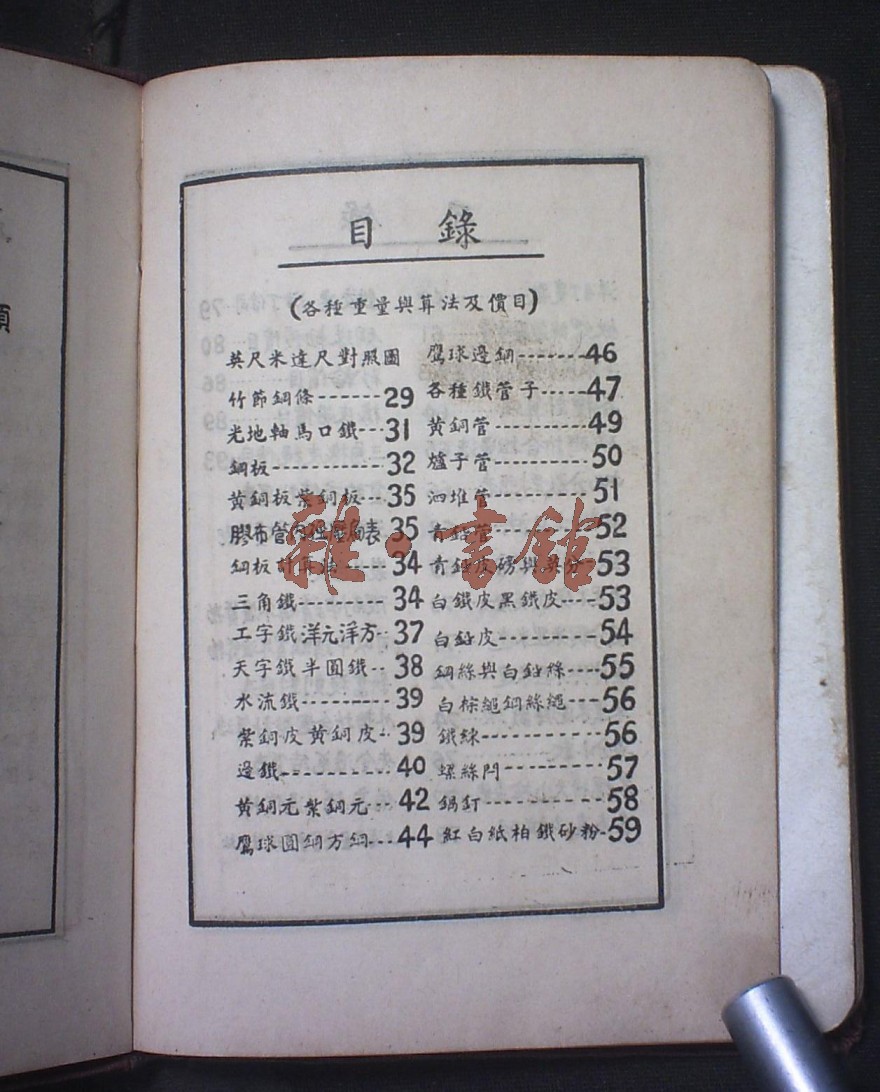 目錄
(各種重量與算法及價目)
英尺米達尺對照圖
竹節鋼條-------29
光地軸馬口鐵---31
鋼板------------32
黃銅板紫銅板---35
膠布管 表35
鋼板計算法-----34
三角鐵---------34
工字鐵洋元洋方--37
天字鐵半圓鐵--38
水流鐵----------39
紫銅皮黃銅皮--39
邊鐵-----------40
黃銅元紫銅元---42
鷹球圓鋼方鋼---44
鷹球邊鋼-------46
各種鐵管子----47
黃銅管---------49
爐子管---------50
泗堆管---------51
青鉛管---------52
青鉛皮磅與英分-53
白鐵皮黑鐵皮---53
白鉛皮---------54
鋼絲與白鉛絲---55
白棕繩鋼絲繩---56
鐵練-----------56
螺絲閂---------57
鍋釘-----------58
紅白紙柏鐵砂粉-59
雅 書館